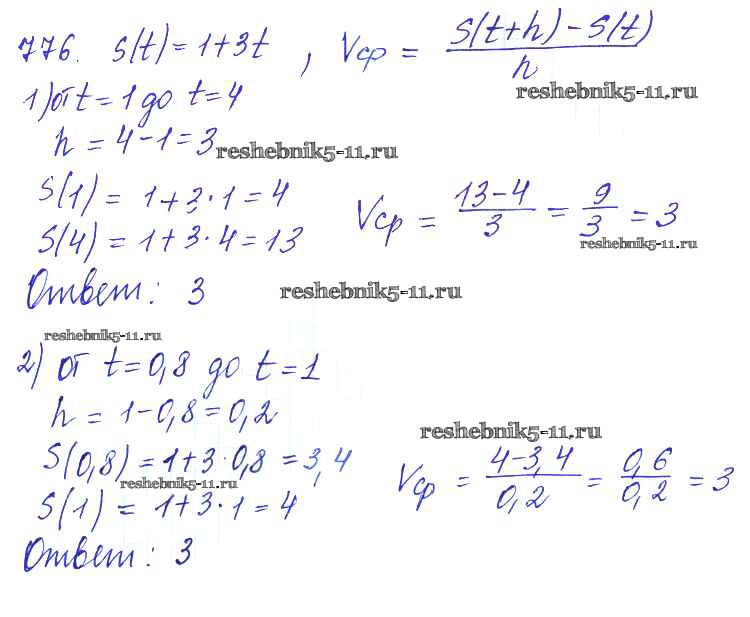 776. S(t) = 1+3t , Vср = S(t+h) - S(t) / h
reshebnik5-11.ru
1) от t = 1 до t = 4
h = 4-1 = 3
reshebnik5-11.ru
S(1) = 1+3·1 = 4
S(4) = 1+3·4 = 13
Vср = 13-4 / 3 = 9 / 3 = 3
reshebnik5-11.ru
Ответ: 3
reshebnik5-11.ru
reshebnik5-11.ru
2) от t = 0,8 до t = 1
h = 1-0,8 = 0,2
reshebnik5-11.ru
S(0,8) = 1+3·0,8 = 3,4
reshebnik5-11.ru
S(1) = 1+3·1 = 4
Vср = 4-3,4 / 0,2 = 0,6 / 0,2 = 3
Ответ: 3